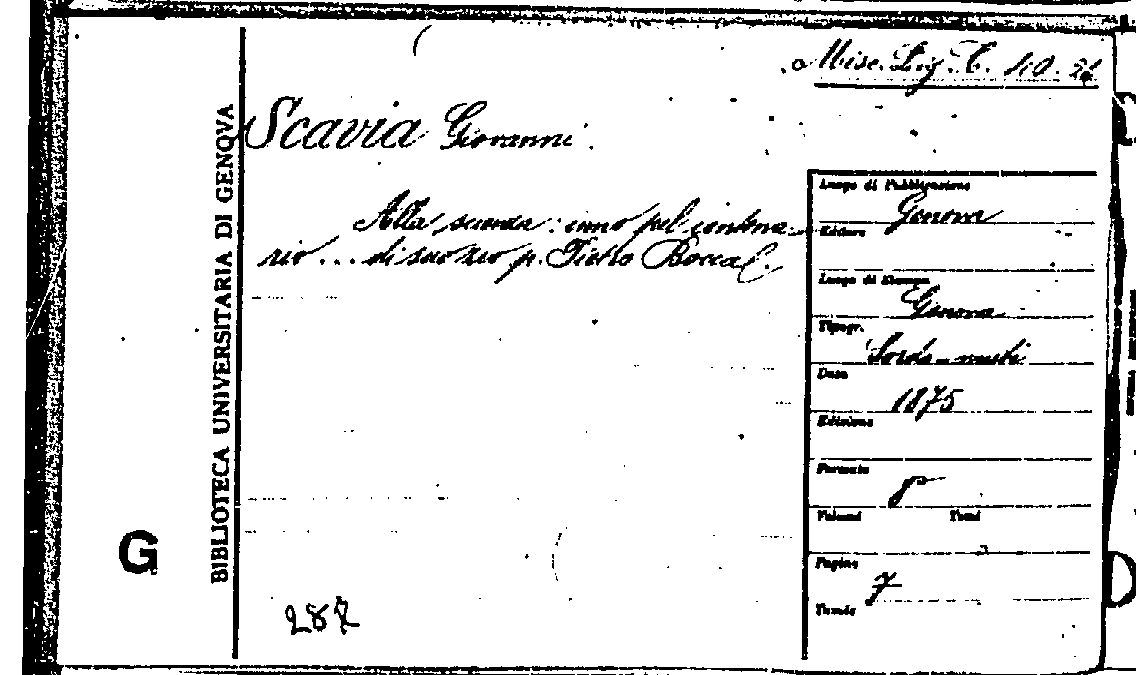 Misc. Lig. C. 40. 21
Scavia Giovanni.
Alla scienza: inno pel centena-
rio... di suo zio p. Pietro Boccal.
BIBLIOTECA UNIVERSITARIA DI GENOVA
G
Luogo di Pubblicazione
Genova
Editore
Luogo di Stampa
Genova
Tipogr.
Sordo-muti
Data
1875
Edizione
Formato
8°
Volumi Tomi
Pagine
7
Tavole
287